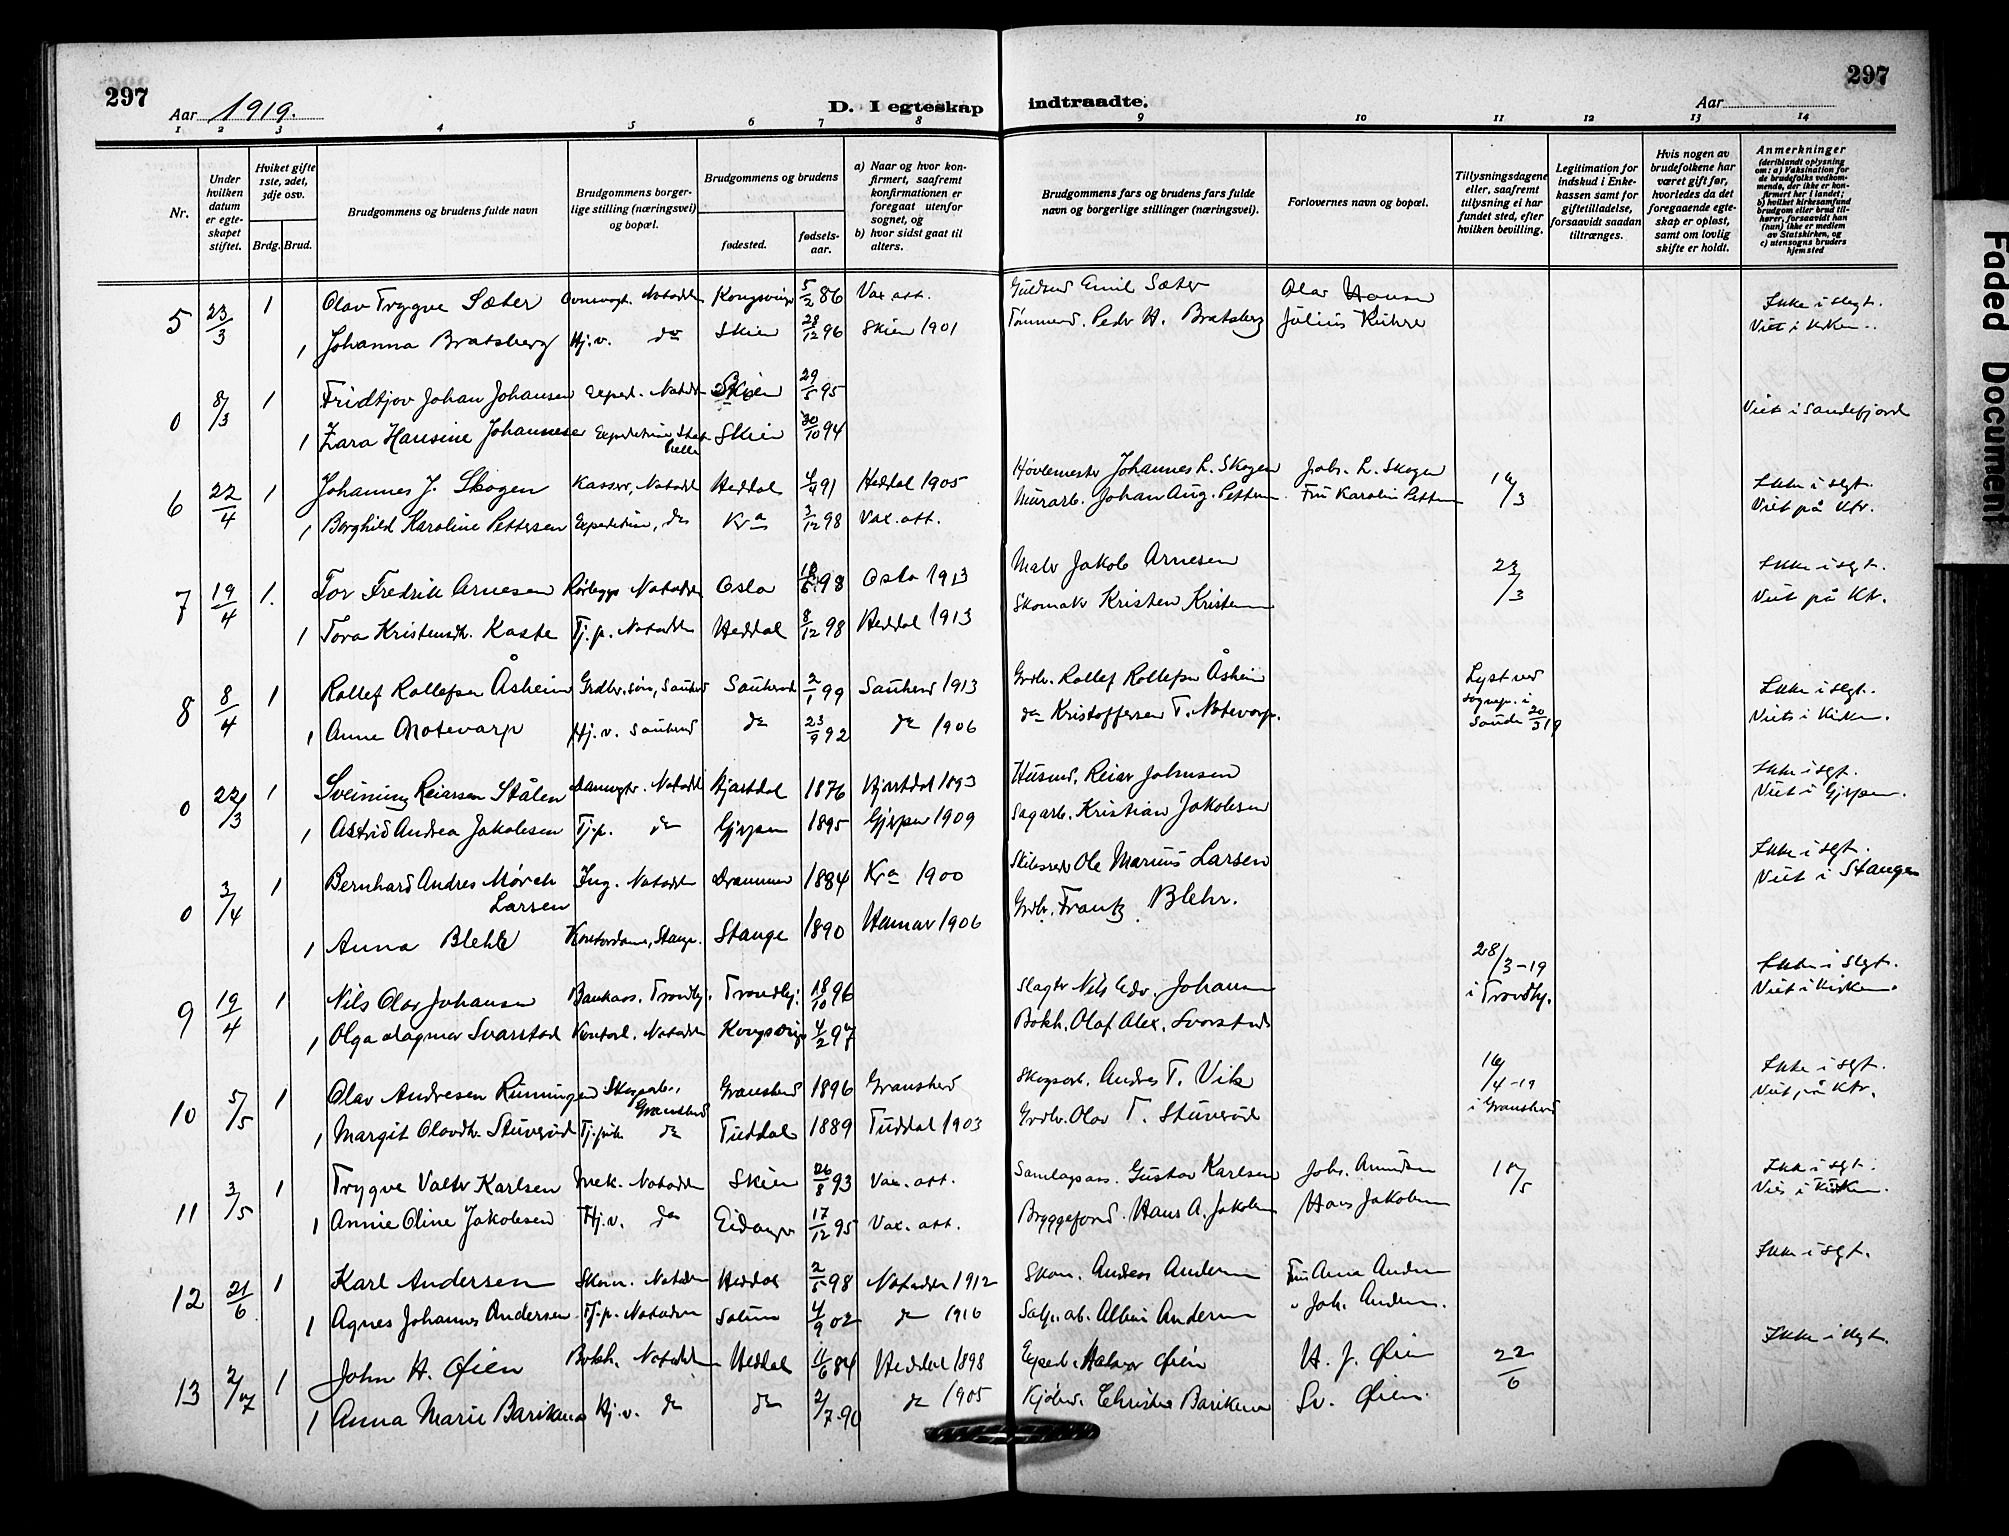 297
Aar 1919.
D. I egteskap indtraadte.
Aar
297
1 2 3 4 5 6 7 8 9 10 11 12 13 14
Nr.
Under hvilken datum er egteskapet stiftet.
Hvilket gifte 1ste, 2det, 3dje osv.
Brdg. Brud.
Brudgommens og brudens fulde navn
Brudgommens borgerlige stilling (næringsvei) og bopæl.
Brudgommens og brudens
fødested.
fødselsaar.
a) Naar og hvor konfirmert, saafremt konfirmationen er foregaat utenfor sognet, og
b) hvor sidst gaat til alters.
Brudgommens fars og brudens fars fulde navn og borgerlige stillinger (næringsvei).
Forlovernes navn og bopæl.
Tillysningsdagene eller, saafremt tillysning ei har fundet sted, efter hvilken bevilling.
Legitimation for indskud i Enkekassen samt for giftetilladelse, forsaavidt saadan tiltrænges.
Hvis nogen av brudefolkene har været gift før, hvorledes da det foregaaende egteskap er opløst, samt om lovlig skifte er holdt.
Anmerkninger (deriblandt oplysning om: a) Vaksination for de brudefolks vedkommende, der ikke er konfirmert her i landet; b) hvilket kirkesamfund brudgom eller brud tilhører, forsaavidt han (hun) ikke er medlem av Statskirken, og c) utensogns bruders hjemsted
5 23/3 1 Olav Trygve Sæter Notodden Kongsvinger 5/2 86 Vax. att. Guldsmed Emil Sæter Olav Hansen Ikke i slegt.
1 Johanna Bratsberg Hj. v. do Skien 28/12 96 Skien 1901 Tømmerm. Peder H. Bratsberg Julius Viet i Kirken.
0 8/3 1 Fridtjov Johan Johansen Exped. Notodden Skien 29/5 95 Viet i Sandefjord
1 Zara Hansine Johannesen Skien 30/10 94
6 22/4 1 Johannes J. Skogen Kasser, Notodd Heddal 4/4 91 Heddal 1905 Høvlemester Johannes L. Skogen Johs. L. Skogen 16/3 Ikke i slegt.
1 Borghild Karoline Pettersen Expeditrice, do Kra 3/12 98 Vax. att. Murarb. Johan Aug. Pettersen Fru Karolin Pettersen Viet på Ktr.
7 19/4 1. Tor Fredrik Arnesen Rørlegger Notodden Oslo 98 Oslo 1913 Maler Jakob Arnesen 23/3 Ikke i slegt.
1 Tora Kristensdtr. Kaste Tj. p. Notodden Heddal 8/12 98 Heddal 1913 Skomaker Kristen Kristensen Viet på Ktr.
8 8/4 1 Rollef Rollefsen Åsheim Grdbr. søn, Sauherad Sauherad 2/1 99 Sauherd 1913 Grdbr. Rollef Rollefsen Åsheim Lyst ved sognep. i Saude 20/3 19 Ikke i slegt.
1 Anne Notevarp Hj. v. Sauherd do 23/9 92 do 1906 do Kristoffersen T. Notevarp. Viet i Kirken.
0 22/3 1 Sveinung Reiarsen Stålen Notodd Hjartdal 1876 Hjartdal 1893 Husmd. Reiar Johnsen Ikke i slegt.
1 Astrid Andrea Jakobsen Tj. p. do Gjerpen 1895 Gjerpen 1909 Sagarb. Kristian Jakobsen Viet i Gjerpen.
0 3/4 1 Bernhard Andres Mørch Larsen Ing. Notodden Drammen 1884 Kra 1900 Skibsreder Ole Marius Larsen Ikke i slegt.
1 Anna Blehr Kontordame, Stange. Stange 1890 Hamar 1906 Grdbr. Frantz Blehr. Viet i Stange
9 19/4 1 Nils Olav Johansen Bankass. Trondhj. Trondhj. 18/10 96 Slagter Nils Edv. Johansen 28/3-19 i Trondhj. Ikke i slegt.
1 Olga Dagmar Svarstad Kontord. Notodden Kongsvinger 4/2 97 Bokh. Olaf Alex. Svorstad Viet i Kirken.
10 5/5 1 Olav Andresen Runningen Skogsarb., Gransherd Gransherd 1896 Gransherd Skogsarb. Andres T. Vik 16/4-19 i Gransherd Ikke i slegt.
1 Margit Olavdtr. Stuverud Tj. pik do Tuddal 1889 Tuddal 1903 Grdbr. Olav T. Stuverud Viet på Ktr.
11 3/5 1 Trygve Valter Karlsen Mek. Notodden Skien 26/8 93 Vax. att. Samlagsass. Gustav Karlsen Johs. Amundsen 18/5 Ikke i slegt.
1 Annie Oline Jakobsen Hj. v. do Eidanger 17/12 95 Vax. att. Bryggeform. Hans A. Jakobsen Hans Jakobsen Viet i Kirken.
12 21/6 1 Karl Andersen Skom. Notodden Heddal 2/5 98 Notodden 1912 Skom. Andreas Andersen Fru Anna Andersen Ikke i slegt.
1 Agnes Johannes Andersen Tj. p. Notodden Solum 4/9 02 do 1916 Salp. arb. Albin Andersen " Joh. Andersen.
13 2/7 1 John H. Øien Bokh. Notodden Heddal 11/6 84 Heddal 1898 Exped. Halvor Øien H. J. Øien 22/6 Ikke i slegt.
1 Anna Marie Barikmo Hj. v. do do 2/7 90 do 1905 Kjøbm. Christen Barikmo Sv. Øien.
Faded Document